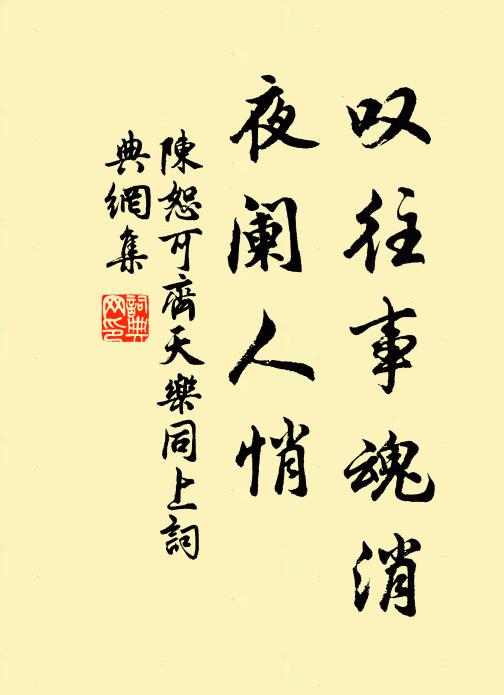 叹往事魂消
夜阑人悄
陳恕可齊天樂同上詞
典網集
詞典网印